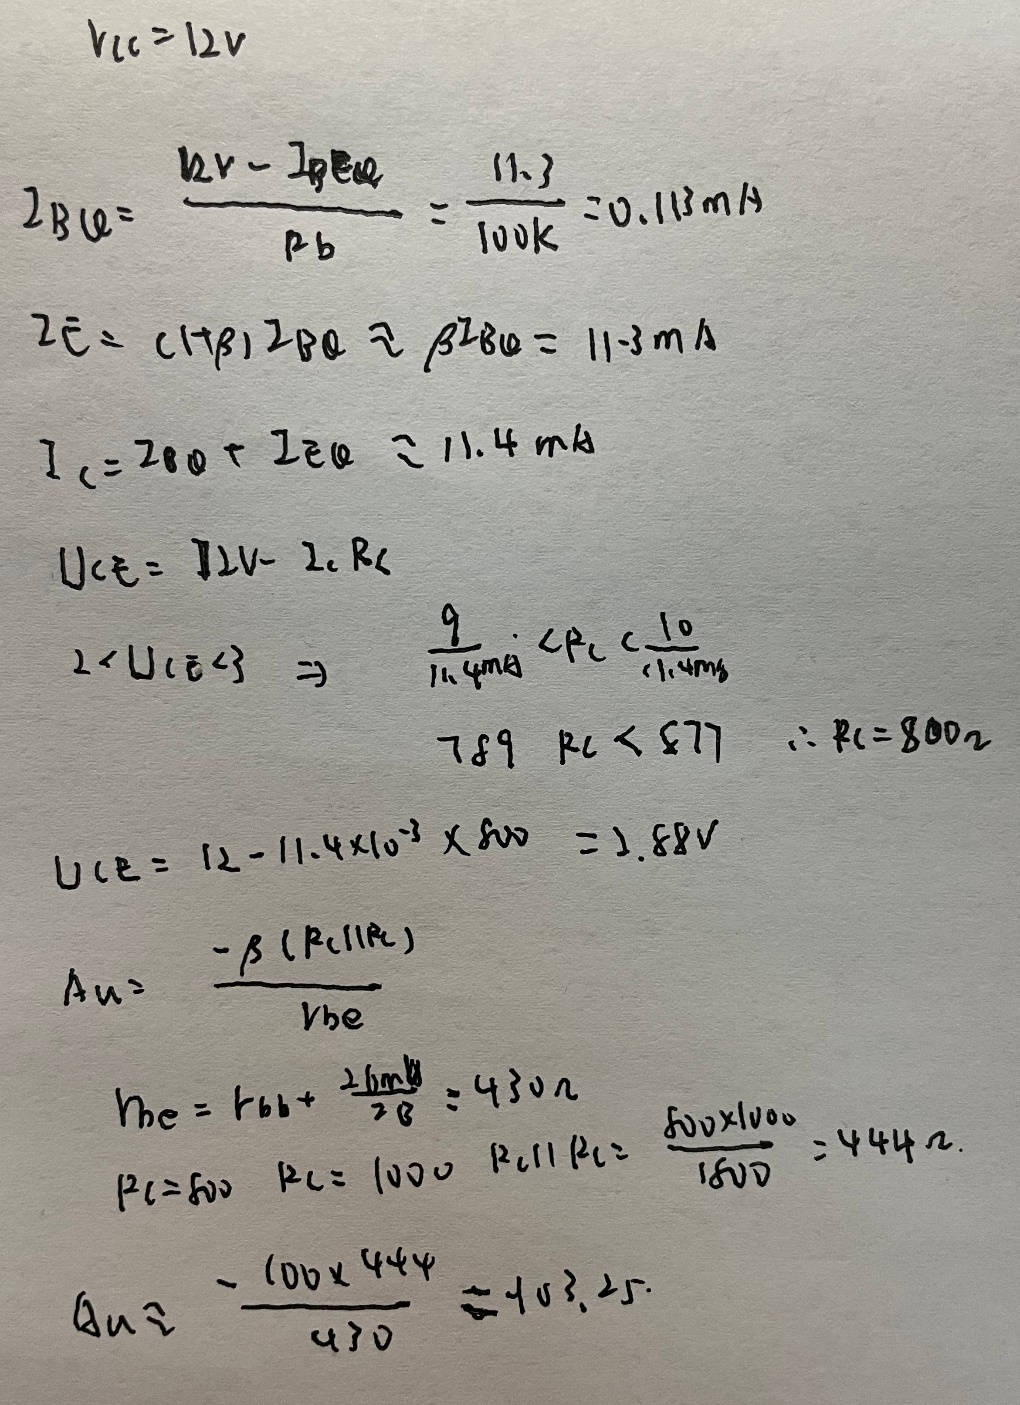 Vcc = 12V
IBQ = (12V - UBEQ) / Rb = 11.3 / 100K = 0.113mA
IE = (1+β) IBQ ≈ βIBQ = 11.3mA
Ic = IBQ + IEQ ≈ 11.4mA
UCE = 12V - Ic Rc
2 < UCE < 3 ⇒ 9 / 11.4mA < Rc < 10 / 11.4mA
789 Rc < 877 ∴ Rc = 800Ω
UCE = 12 - 11.4×10⁻³ × 800 = 2.88V
Au = -β (Rc//RL) / rbe
rbe = rbb + 26mV / IB = 430Ω
Rc = 800 RL = 1000 Rc//RL = 800×1000 / 1800 = 444Ω.
Au ≈ - 100×444 / 430 = -103.25.